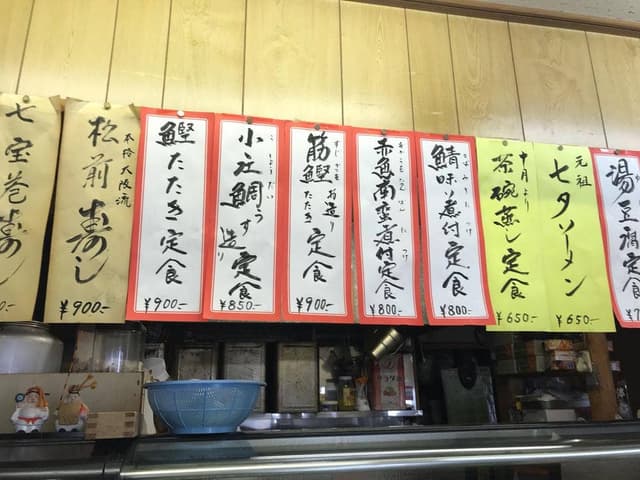 七宝巻寿し
本格大阪流
松前寿し
¥900.-
鰹たたき定食
¥900.-
小庄鯛うす造り定食
こしょうだい
¥850.-
筋鰹お造りたたき定食
¥900.-
赤魚南蛮煮付定食
¥800.-
鯖味ソ煮付定食
¥800.-
十月より
茶碗蒸し定食
¥650.-
元祖
七夕ソーメン
¥650.-
湯豆腐定食
¥7